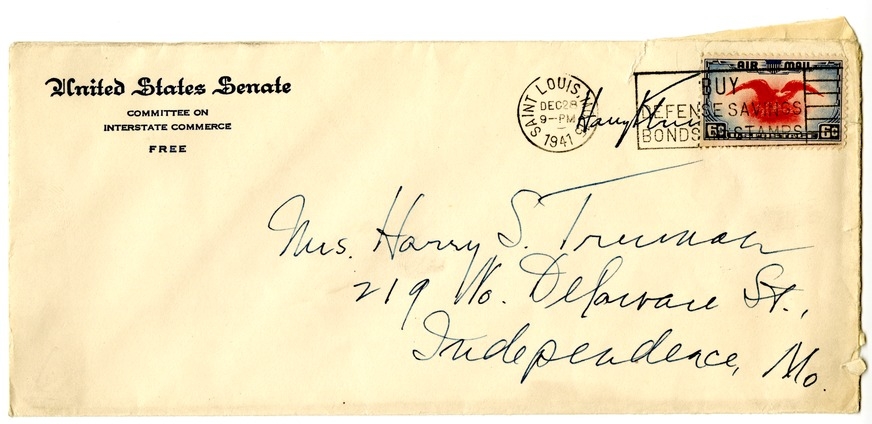 United States Senate
COMMITTEE ON
INTERSTATE COMMERCE
FREE
SAINT LOUIS, MO.
DEC 28
9-PM
1941
BUY
DEFENSE SAVINGS
BONDS AND STAMPS
AIR MAIL
6¢ 6¢
Harry
Mrs. Harry S. Truman
219 No. Delaware St.,
Independence, Mo.